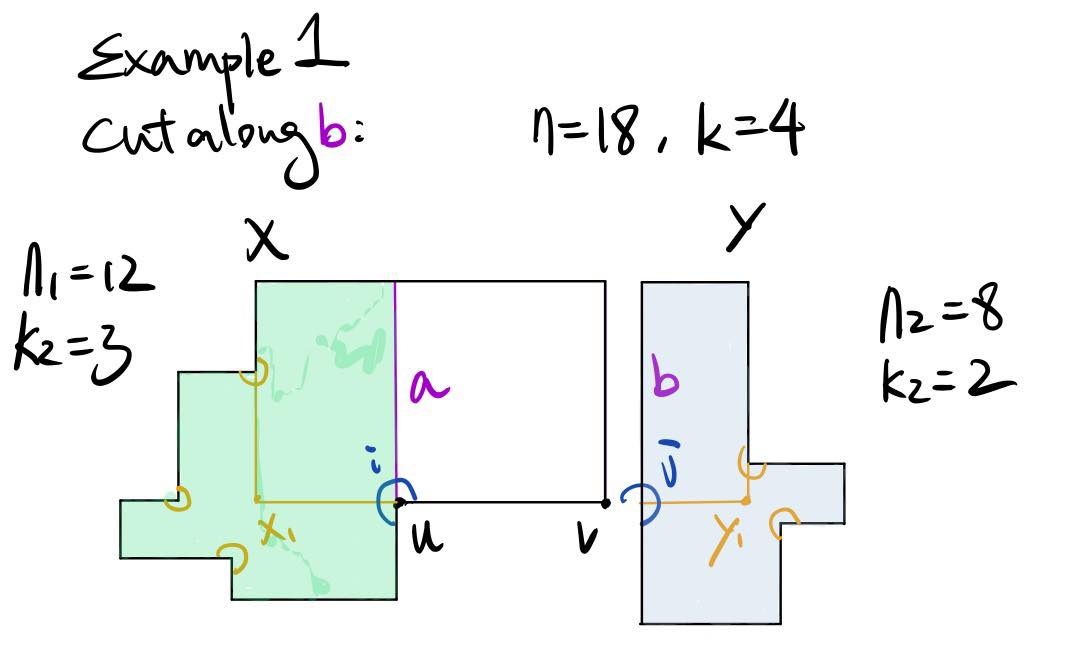 Example 1
Cut along b:
n=18, k=4
X
Y
n1=12
k2=3
n2=8
k2=2
a
b
i
j
X1
u
v
Y1